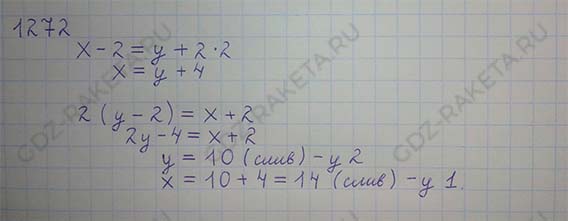 1272
x - 2 = y + 2 · 2
x = y + 4
2 (y - 2) = x + 2
2y - 4 = x + 2
y = 10 (слив) - у 2
x = 10 + 4 = 14 (слив) - у 1.
GDZ-RAKETA.RU
GDZ-RAKETA.RU
GDZ-RAKETA.RU
GDZ-RAKETA.RU